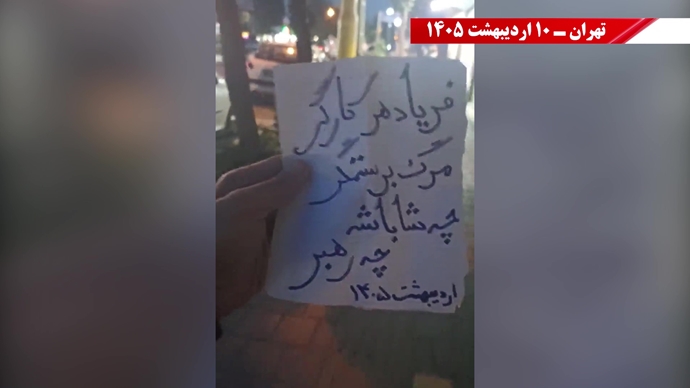 تهران ـ ۱۰ اردیبهشت ۱۴۰۵
فریاد هر کارگر
مرگ بر ستمگر
چه شا باشه
چه رهبر
اردیبهشت ۱۴۰۵